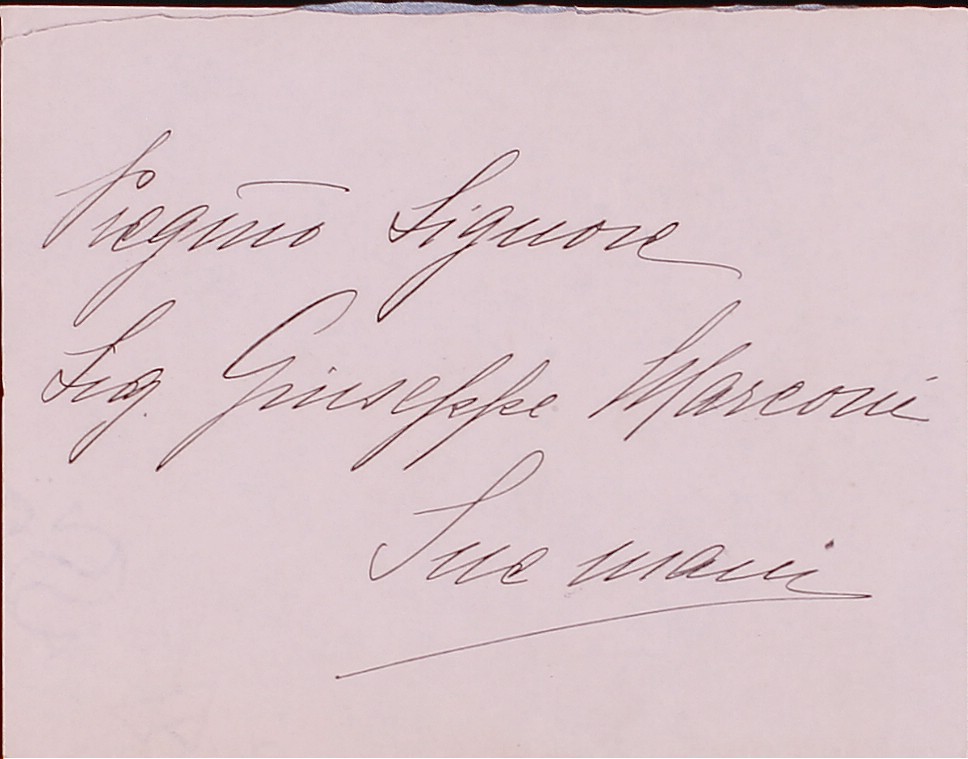 Pregmo Signore
Sig. Giuseppe Marconi
Sue mani